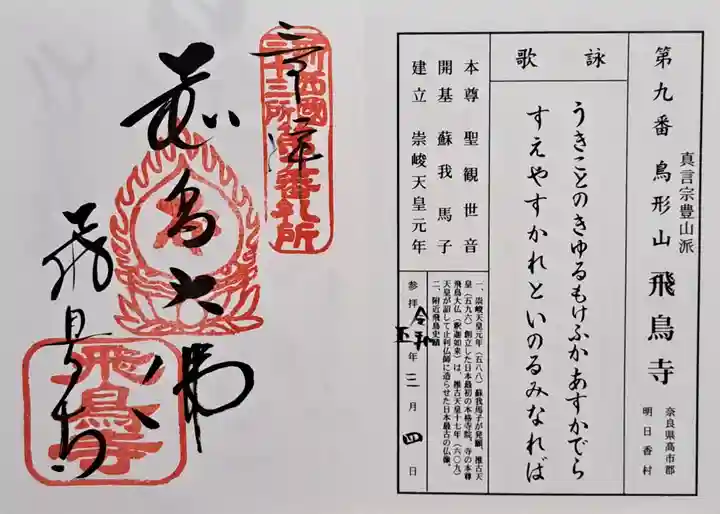 第九番 鳥形山 飛鳥寺
真言宗豊山派
奈良県高市郡
明日香村
詠歌
うきことのきゆるもけふかあすかでら
すえやすかれといのるみなれば
本尊 聖観世音
開基 蘇我馬子
建立 崇峻天皇元年
一、崇峻天皇元年(五八八)蘇我馬子が発願、推古天
皇(五九六)創立した日本最初の本格寺院。寺の本尊
飛鳥大仏(釈迦如来)は、推古天皇十七年(六〇九)
天皇が詔して止利仏師に造らせた日本最古の仏像。
二、附近飛鳥史蹟
参拝 令和五年 三月 四日
飛鳥大佛
飛鳥寺
飛鳥寺